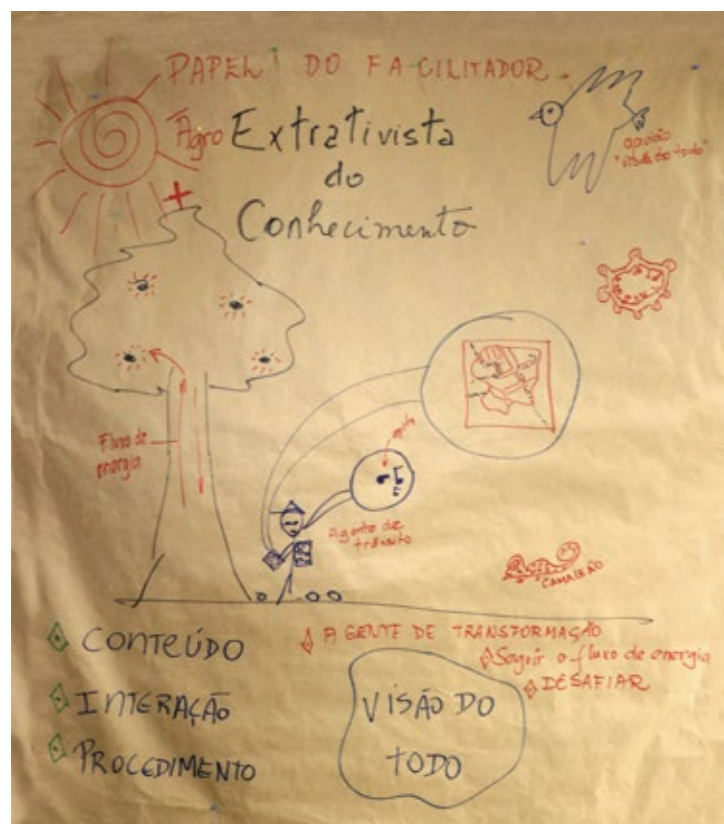 PAPEL DO FACILITADOR.
Agro Extrativista
do
Conhecimento
gavião
"visão do todo"
Fluxo de
energia
apito
Agente de
trânsito
CAMALEÃO
CONTEÚDO
INTERAÇÃO
PROCEDIMENTO
AGENTE DE TRANSFORMAÇÃO
Seguir o fluxo de energia
DESAFIAR
VISÃO DO
TODO